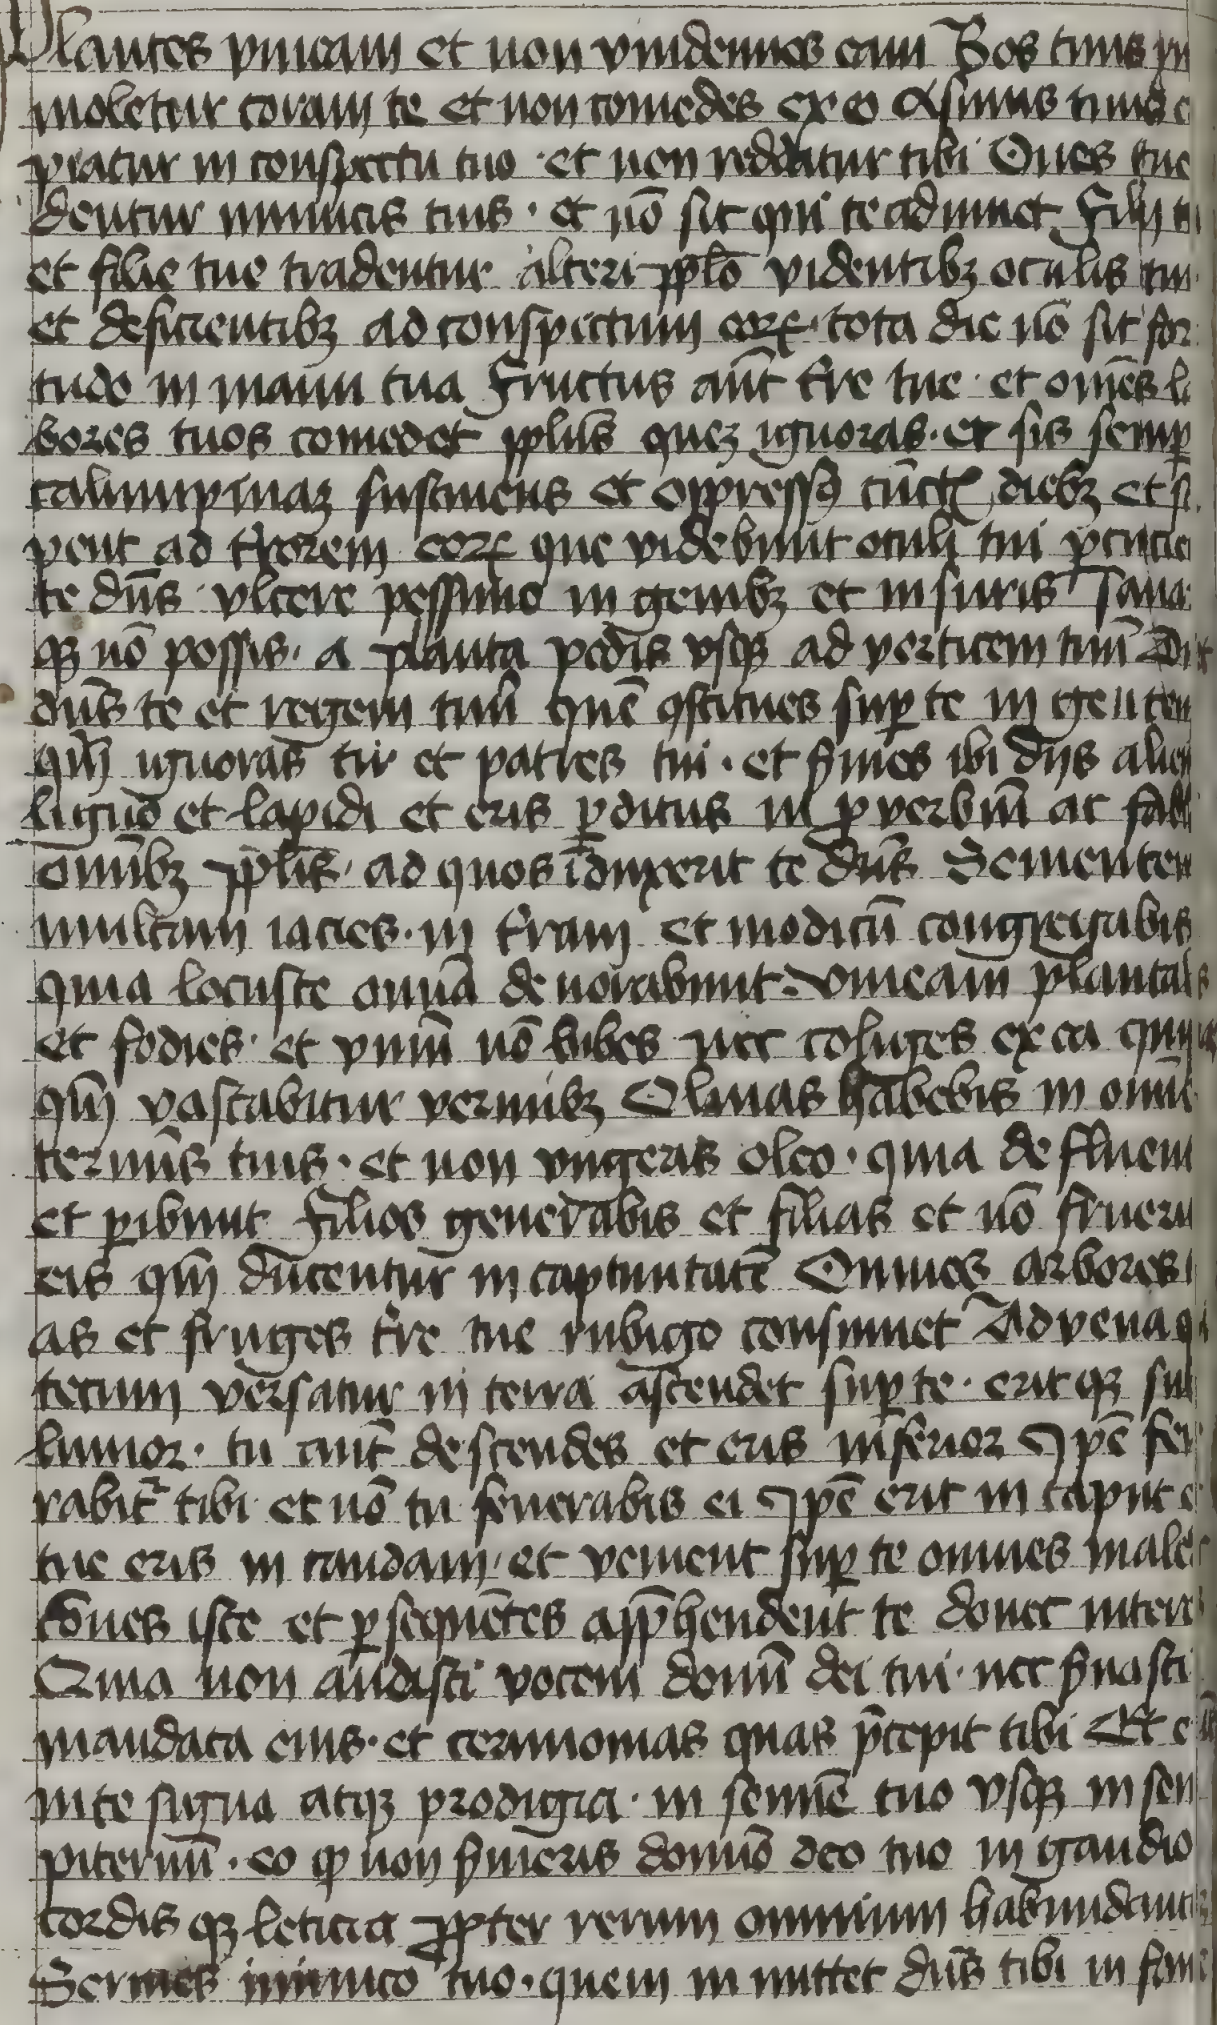 Plantes vineam et non vindemies eam Bos tuus im
moletur coram te et non comedes ex eo Asinus tuus
piatur in conspectu tuo · et non reddatur tibi Oues tue
dentur inimicis tuis · et nō sit qui te adiuuet Filij tu
et filie tue tradentur alteri pplō videntibꝫ oculis tui
et deficientibꝫ ad conspectum eoꝝ · tota die nō sit for
tudo in manu tua Fructus aūt tr̄e tue · et om̄es la
bores tuos comedet ppls̄ queꝫ ignoras · et sis semꝑ
calumpniaꝫ sustinens et oppressꝯ cūctꝭ diebꝫ et st
pens ad t̄rorem eoꝝ que videbunt oculi tui ꝑcucie
te dn̄s vlcere pessimo in genibꝫ et in suris Sana
qꝫ nō possis · a planta pedis vsqꝫ ad verticem tuū Du
dn̄s te et regem tuū quē ꝯstitues suꝑ te in gentem
qm̄ ignoras tu et patres tui · et s̄uies ibi dijs alien
ligno et lapidi et eris ꝑditus in ꝓverbiū ac fabl
omībꝫ ppl̄is · ad quos īduxerit te dn̄s Sementem
multam iacies · in t̄ram et modicū congregabis
quia locuste omīa deuorabunt · vineam plantab
et fodies · et vinū nō bibes nec colliges ex ea
qm̄ vastabitur vermibꝫ Oliuas habebis in omī
termīs tuis · et non vngeris oleo · quia defluent
et ꝑibunt Filios generabis et filias et nō frueris
eis qm̄ ducentur in captiuitatē Omnes arbores
as et fruges tr̄e tue rubigo consumet Advena q
tecum versatur in terra ascendet suꝑ te · erit qꝫ sub
limior · tu aut̄ descendes et eris inferior Ipē fen
rabit̄ tibi et nō tu fenerabis ei Ipē erit in caput
tue eris in caudam · et venient suꝑ te omnes male
cōnes iste et ꝑsequētes app̄hendent te donec intere
Quia non audisti vocem domī dei tui · nec s̄uasti
mandata eius · et cerimonias quas p̄cepit tibi Et e
in te signa atqꝫ prodigia · in semīe tuo vsqꝫ in sem
piternū · eo ꝙ non s̄uieris domīo deo tuo in gaudio
cordis qꝫ leticia ꝓpter rerum omnium habundanci
Seruies inimico tuo · quem inmittet dn̄s tibi in fam